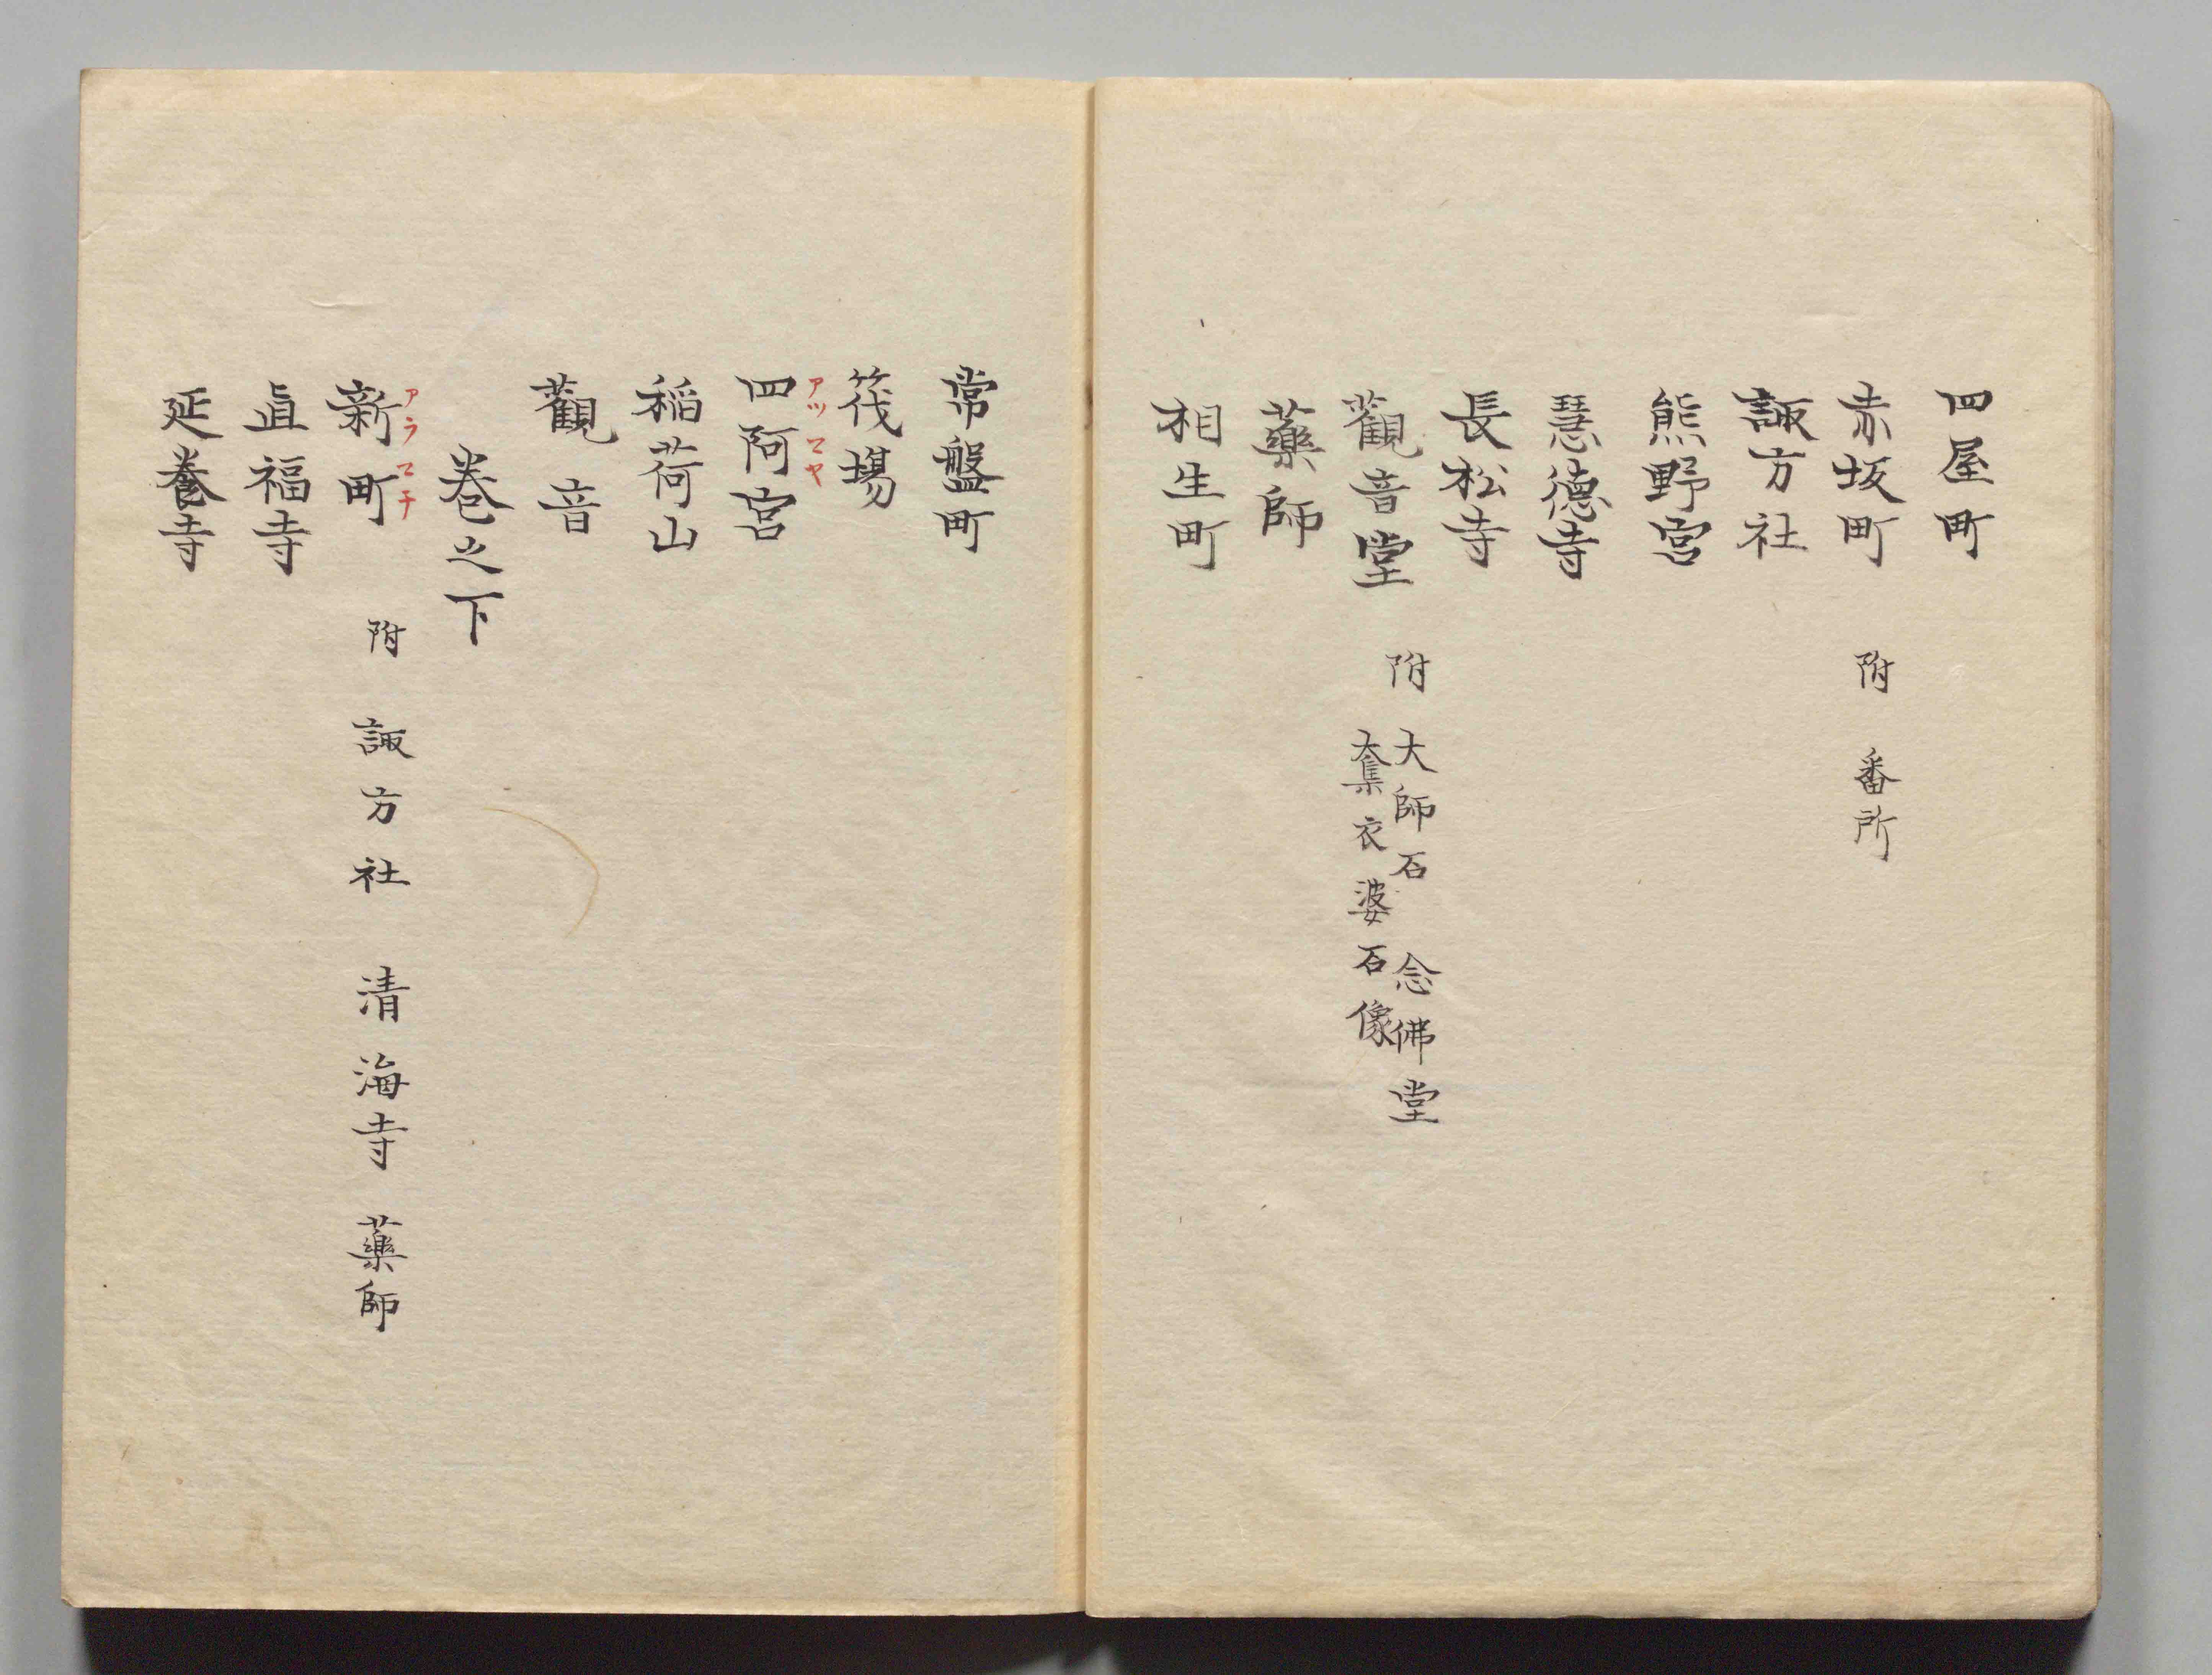 四屋町
赤坂町 附 番所
諏方社
熊野宮
慧德寺
長松寺
觀音堂 附 大師石 念佛堂
奪衣婆石像
藥師
相生町
常盤町
筏場
四阿宮
アツマヤ
稲荷山
觀音
巻之下
新町 附 諏方社 清海寺 藥師
アラマチ
眞福寺
延養寺